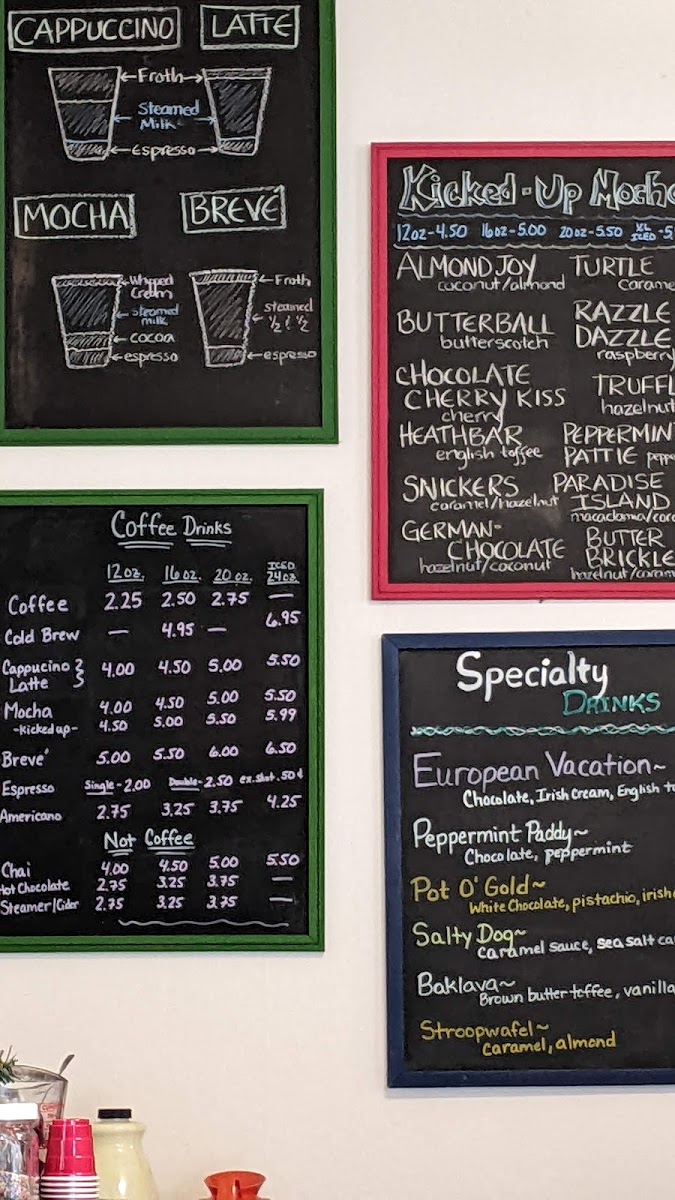 CAPPUCCINO LATTE
Froth
Steamed
Milk
Espresso
MOCHA BREVÉ
Whipped
Cream
steamed
milk
cocoa
espresso
Froth
steamed
½ & ½
espresso
Coffee Drinks
12oz. 16 oz. 20 oz. ICED 24oz
Coffee 2.25 2.50 2.75 —
Cold Brew — 4.95 — 6.95
Cappucino
Latte 4.00 4.50 5.00 5.50
Mocha 4.00 4.50 5.00 5.50
-kicked up- 4.50 5.00 5.50 5.99
Brevé 5.00 5.50 6.00 6.50
Espresso Single - 2.00 Double - 2.50 ex. shot .50¢
Americano 2.75 3.25 3.75 4.25
Not Coffee
Chai 4.00 4.50 5.00 5.50
Hot Chocolate 2.75 3.25 3.75 —
Steamer/Cider 2.75 3.25 3.75 —
Kicked-Up Mocha
12oz-4.50 16oz-5.00 20oz-5.50 XL ICED -5
ALMOND JOY
coconut/almond
BUTTERBALL
butterscotch
CHOCOLATE
CHERRY KISS
cherry
HEATHBAR
english toffee
SNICKERS
caramel/hazelnut
GERMAN-
CHOCOLATE
hazelnut/coconut
TURTLE
Carame
RAZZLE
DAZZLE
raspberry
TRUFFL
hazelnut
PEPPERMIN
PATTIE peppe
PARADISE
ISLAND
macadamia/cara
BUTTER
BRICKLE
hazelnut/caram
Specialty
DRINKS
European Vacation~
Chocolate, Irish Cream, English to
Peppermint Paddy~
Chocolate, peppermint
Pot O' Gold~
White Chocolate, pistachio, irish
Salty Dog~
caramel sauce, sea salt ca
Baklava~
Brown butter toffee, vanilla
Stroopwafel~
Caramel, almond